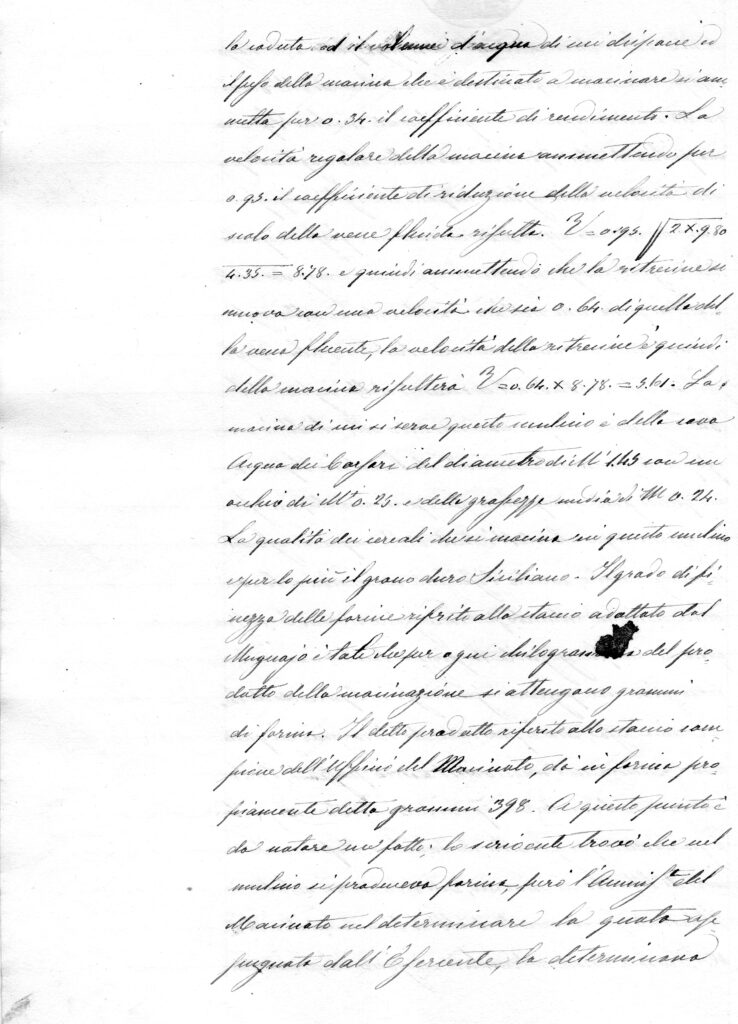 la caduta ed il volume d'acqua di cui dispone ed
il peso della macina che è destinato a macinare si am-
metta per 0.34. il coefficiente di rendimento. La
velocità regolare della macina ammettendo per
0.95. il coefficiente di riduzione della velocità di
scolo della vena fluida risulta. V = 0.95. √2. X. 9.80
4.35. = 8.78. e quindi ammettendo che la ritrecine si
muova con una velocità che sia 0.64. di quella del-
la vena fluente, la velocità della ritrecine e quindi
della macina risulterà V = 0.64. X 8.78. = 5.61. La
macina di cui si serve questo mulino è della cava
Acqua dei Corsari del diametro di M.i 1.45 con un
occhio di M.i 0.25. e della grossezza media di M 0.24.
La qualità dei cereali che si macina in questo mulino
e per lo più il grano duro Siciliano. Il grado di fi-
nezza delle farine riferito allo staccio adottato dal
Mugnajo è tale che per ogni chilogramma del pro-
dotto della macinazione si attengano grammi
di farina. Il detto prodotto riferito allo staccio cam-
pione dell'Ufficio del Macinato, da in farina pro-
priamente detta grammi 398. A questo punto è
da notare un fatto; lo scrivente trovò che nel
mulino si produceva farina, però l'Ammi.ne del
Macinato nel determinare la quota op-
pugnata dall'Esercente, la determinava